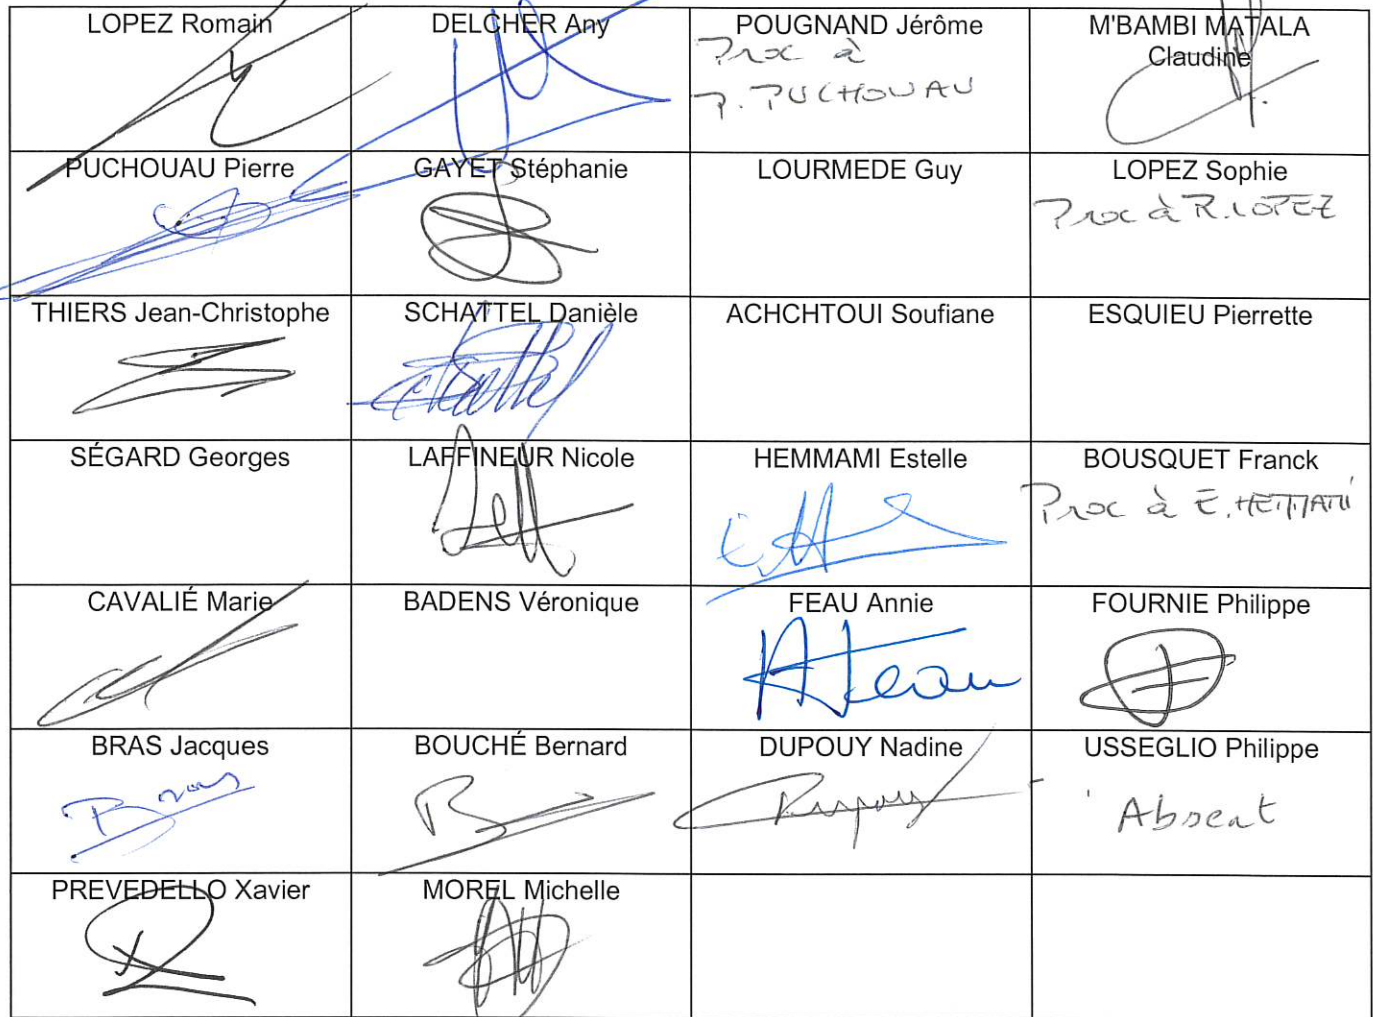 LOPEZ Romain
DELCHER Any
POUGNAND Jérôme
Proc à
P. PUCHOUAU
M'BAMBI MATALA
Claudine
PUCHOUAU Pierre
GAYET Stéphanie
LOURMEDE Guy
LOPEZ Sophie
Proc à R. LOPEZ
THIERS Jean-Christophe
SCHATTEL Danièle
ACHCHTOUI Soufiane
ESQUIEU Pierrette
SÉGARD Georges
LAFFINEUR Nicole
HEMMAMI Estelle
BOUSQUET Franck
Proc à E. HEMMAMI
CAVALIÉ Marie
BADENS Véronique
FEAU Annie
A Feau
FOURNIE Philippe
BRAS Jacques
Bras
BOUCHÉ Bernard
DUPOUY Nadine
Dupouy
USSEGLIO Philippe
Absent
PREVEDELLO Xavier
MOREL Michelle